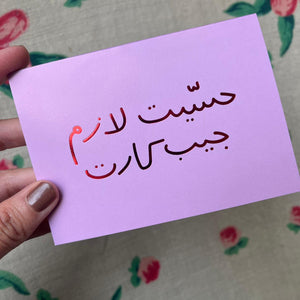 حسّيت لازم
جيب كارت